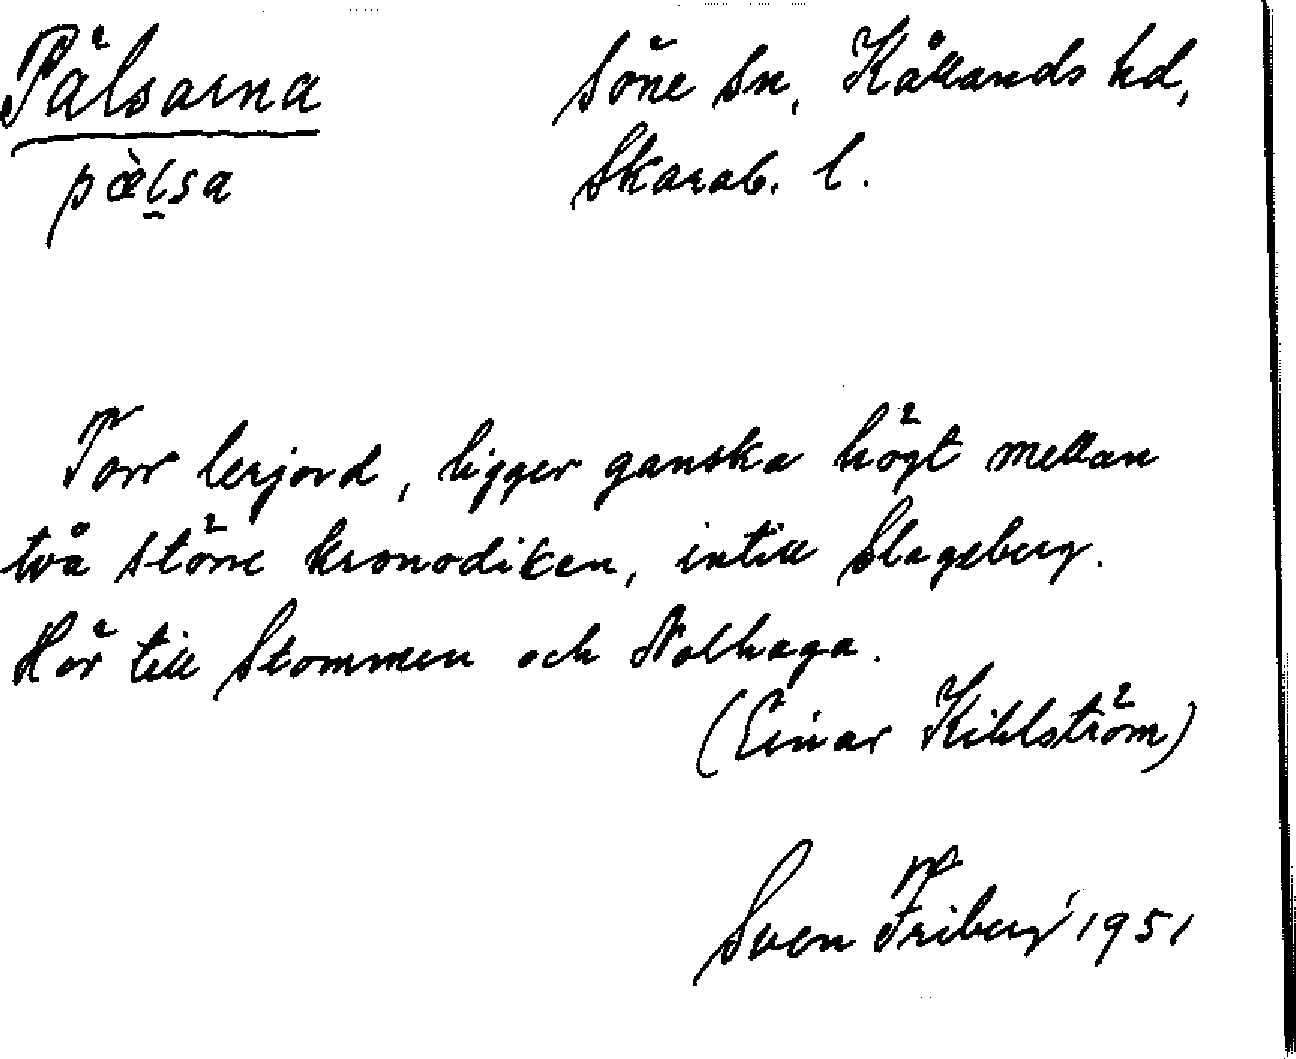 Pälsarna
Söne sn, Kållands hd,
pæ̀l̠sa
Skarab. l.
Torr lerjord, ligger ganska högt mellan
två större kronodiken, intill Slageberg.
Hör till Stommen och Nolhaga.
(Einar Kihlström)
Sven Friberg 1951